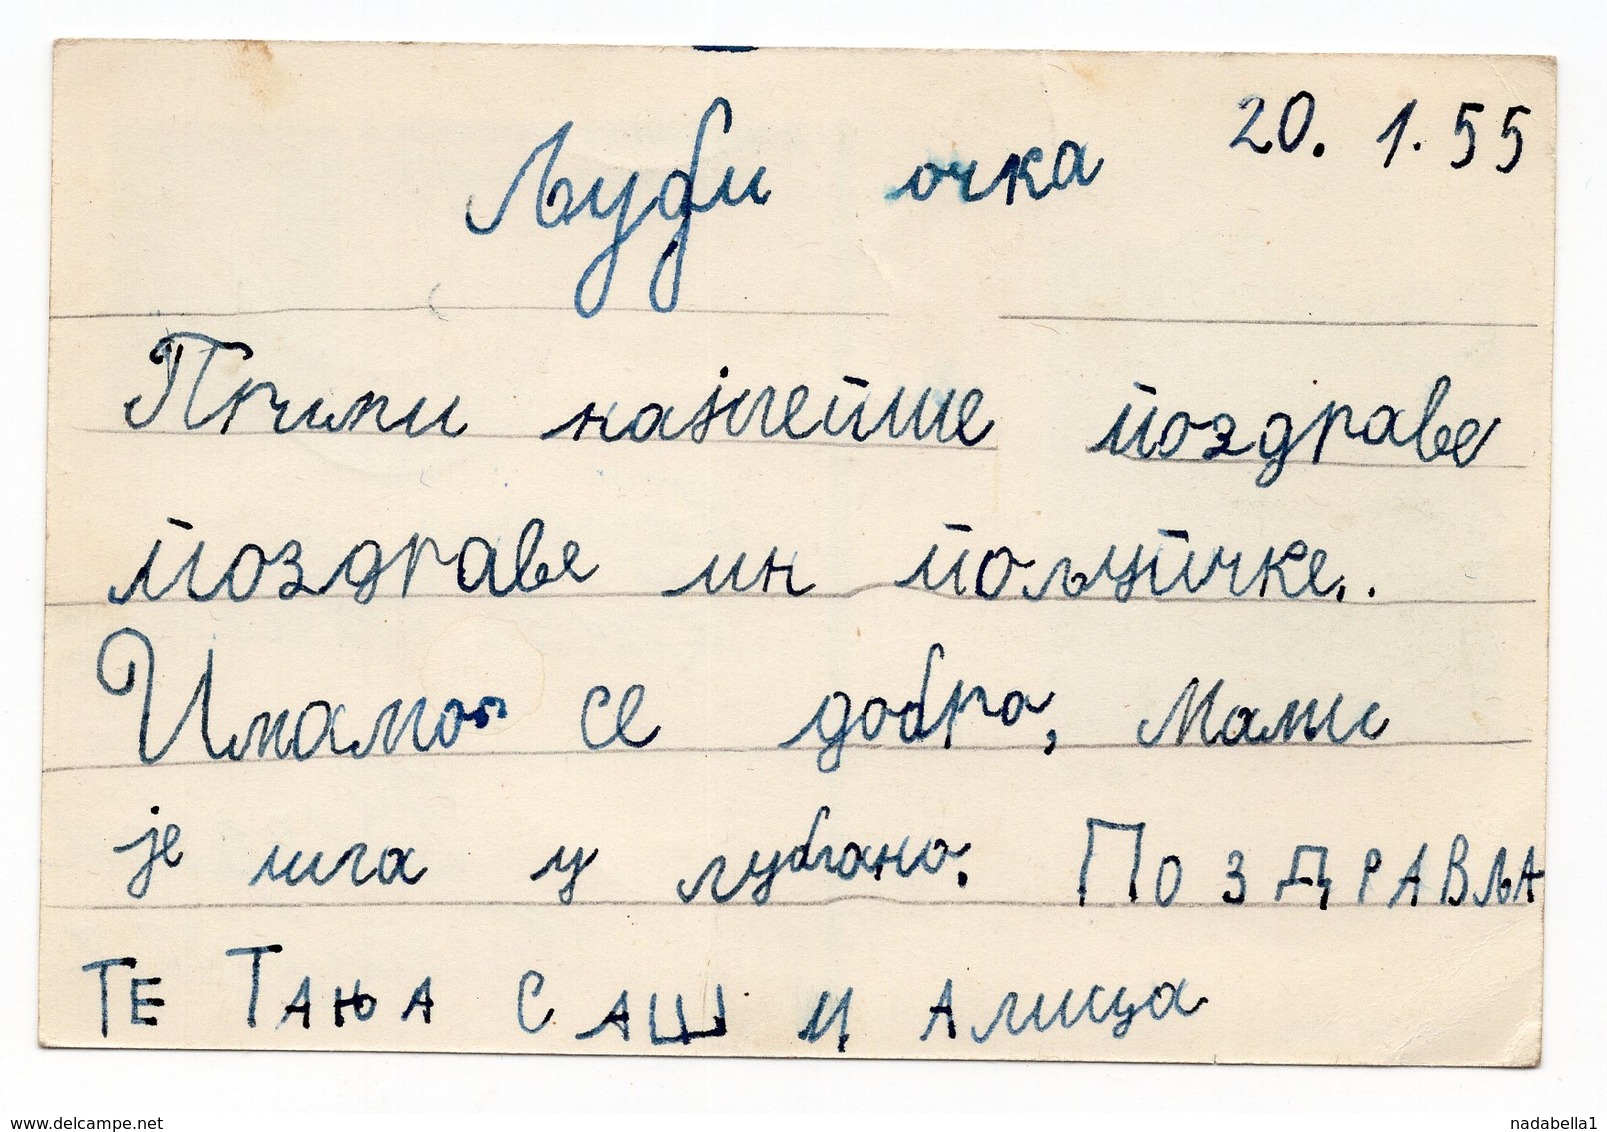 20. 1. 55
Љуби очка
Прими најлепше поздраве
поздраве ин пољупчке..
Имамо се добро, Мами
је ига у лубгано. Поздравља
те Тања Саш и Алица
nadabella1